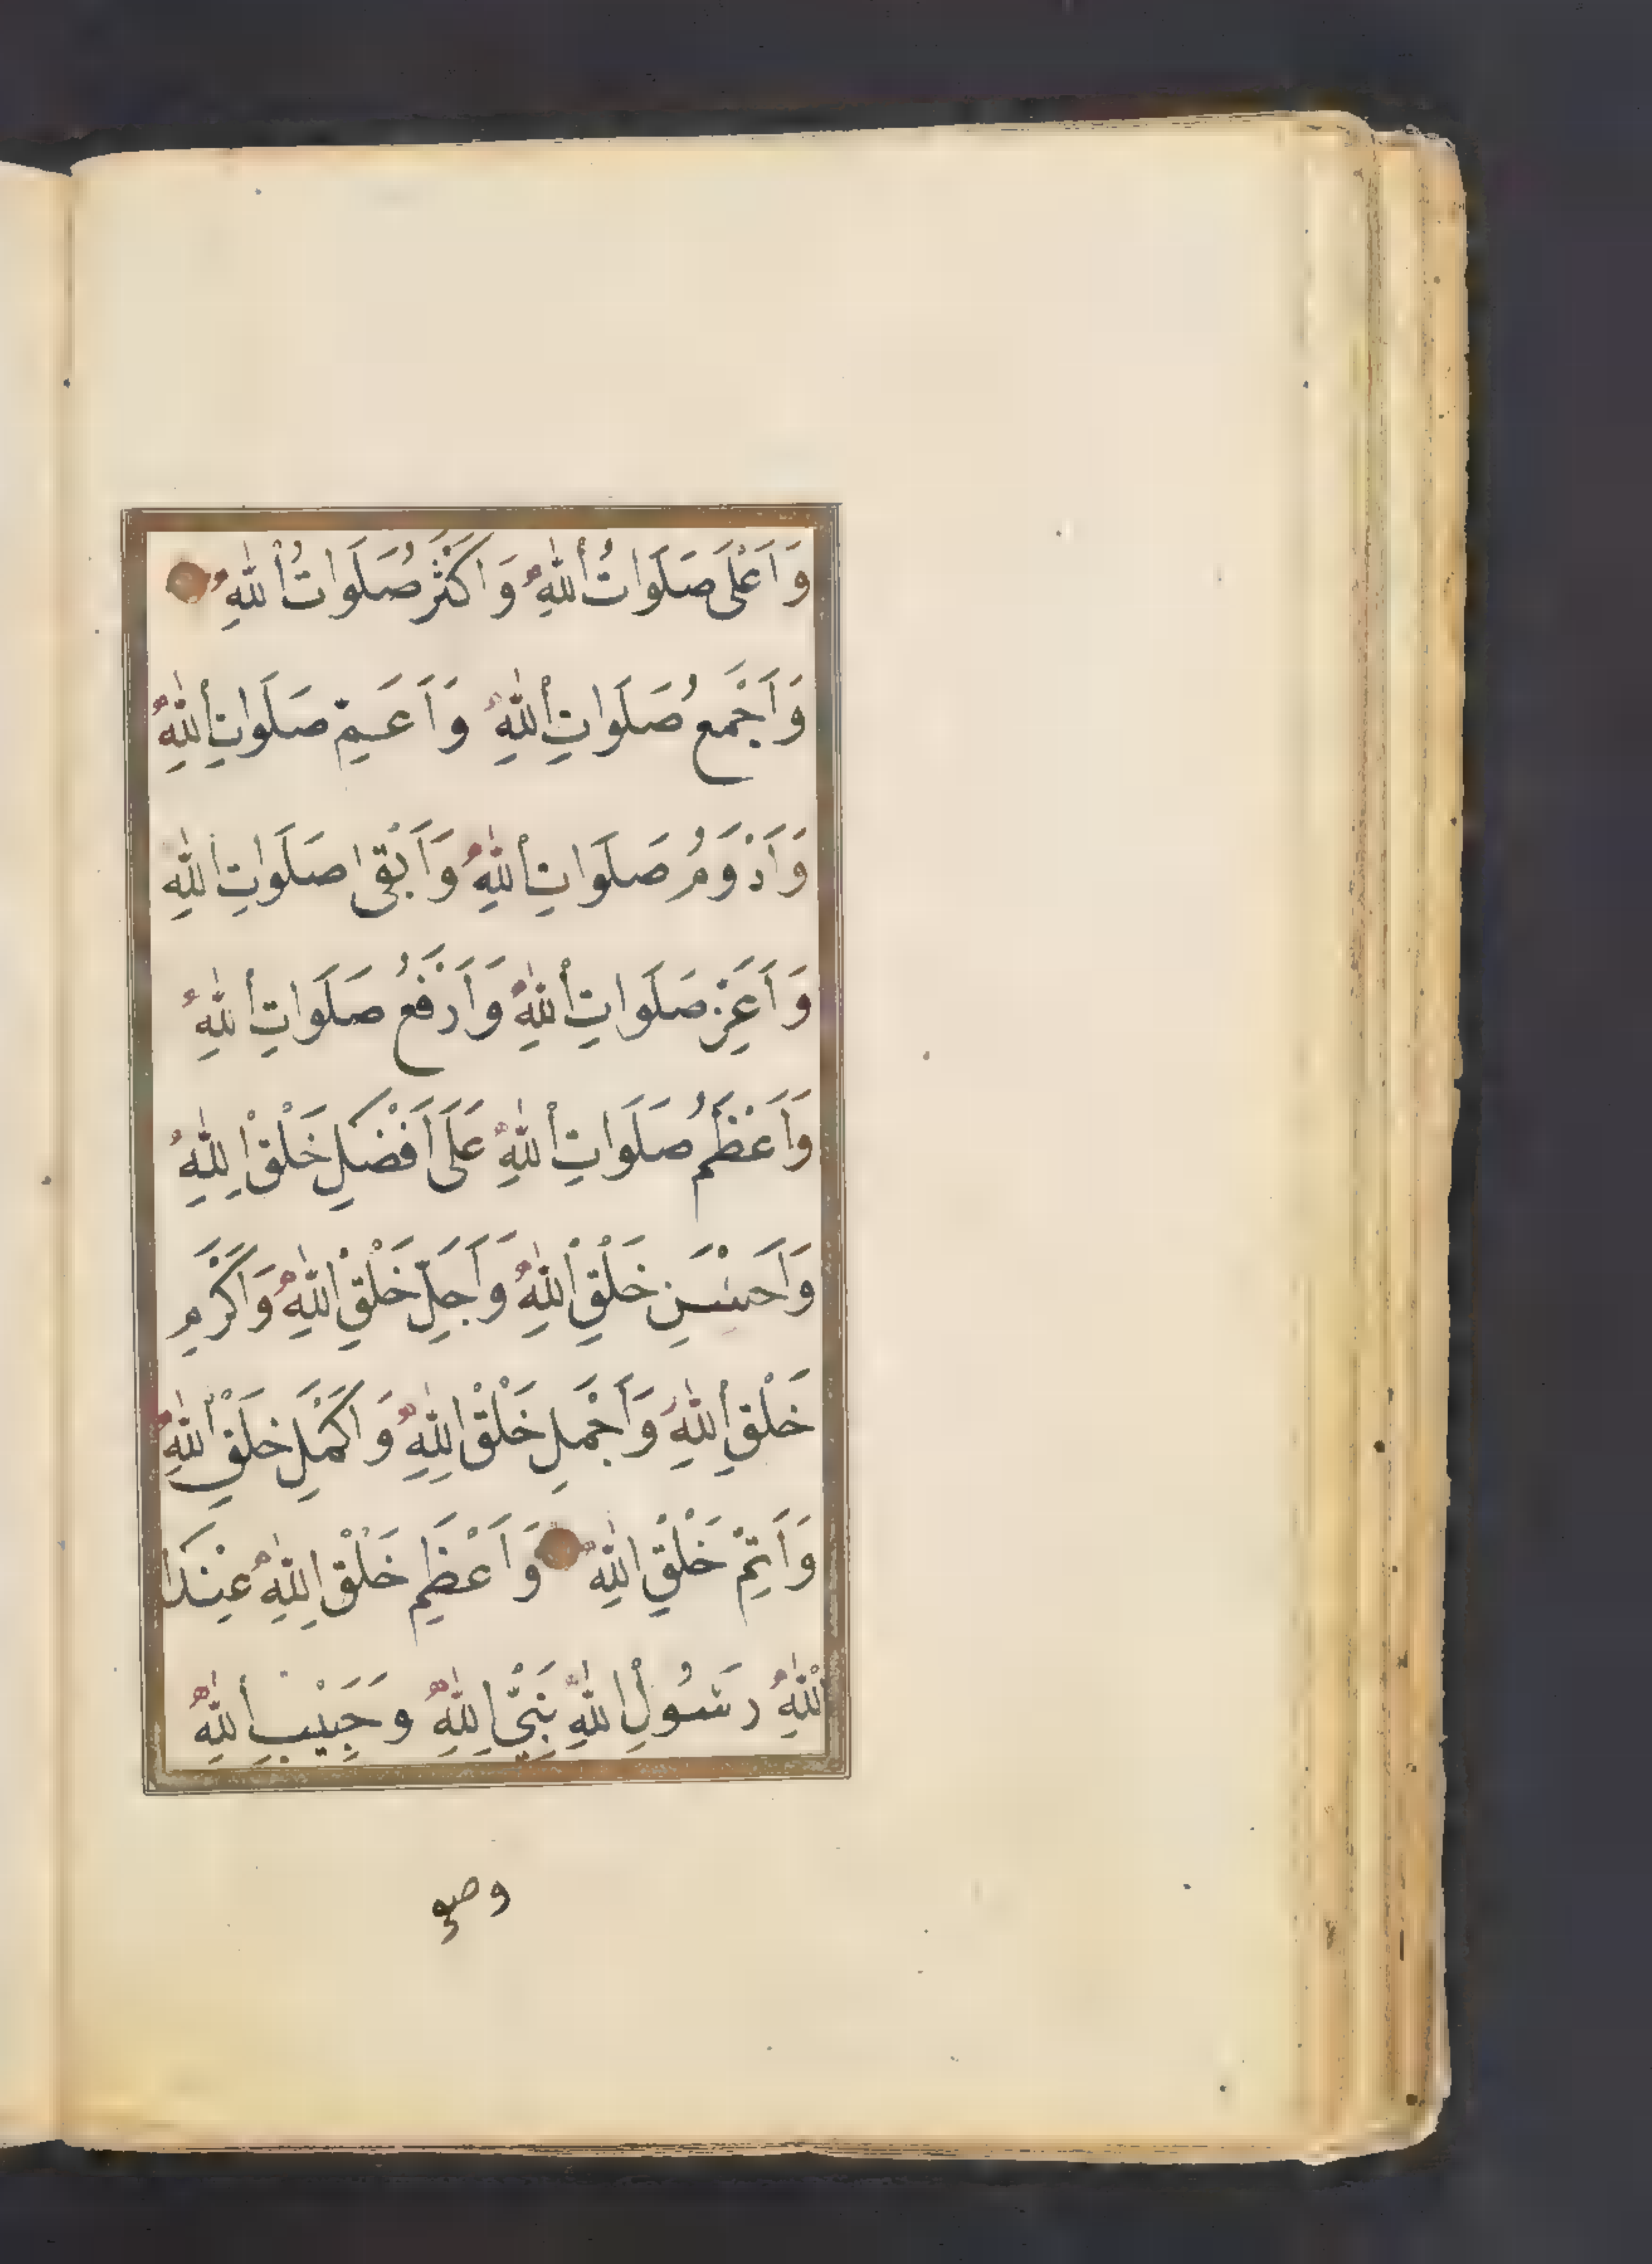 وَاَعْلَى صَلَوَاتُ اللّٰهِ وَاَكْثَرُ صَلَوَاتُ اللّٰهِ
وَاَجْمَعُ صَلَوَاتِ اللّٰهِ وَاَعَمِّ صَلَوَاتِ اللّٰهِ
وَاَدْوَمُ صَلَوَاتِ اللّٰهِ وَاَبْقٰى صَلَوَاتِ اللّٰهِ
وَاَعَزِّ صَلَوَاتِ اللّٰهِ وَاَرْفَعُ صَلَوَاتِ اللّٰهِ
وَاَعْظَمُ صَلَوَاتِ اللّٰهِ عَلَى اَفْضَلِ خَلْقِ اللّٰهِ
وَاَحْسَنِ خَلْقِ اللّٰهِ وَاَجَلِّ خَلْقِ اللّٰهِ وَاَكْرَمِ
خَلْقِ اللّٰهِ وَاَجْمَلِ خَلْقِ اللّٰهِ وَاَكْمَلِ خَلْقِ اللّٰهِ
وَاَتَمِّ خَلْقِ اللّٰهِ وَاَعْظَمِ خَلْقِ اللّٰهِ عِنْدَ ا
للّٰهِ رَسُولِ اللّٰهِ نَبِيِّ اللّٰهِ وَحَبِيْبِ اللّٰهِ
وصفى